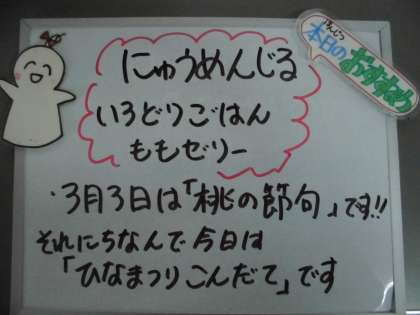 本日のおすすめ
ほんじつ
にゅうめんじる
いろどりごはん
ももゼリー
・3月3日は「桃の節句」です!!
それにちなんで今日は
「ひなまつりこんだて」です